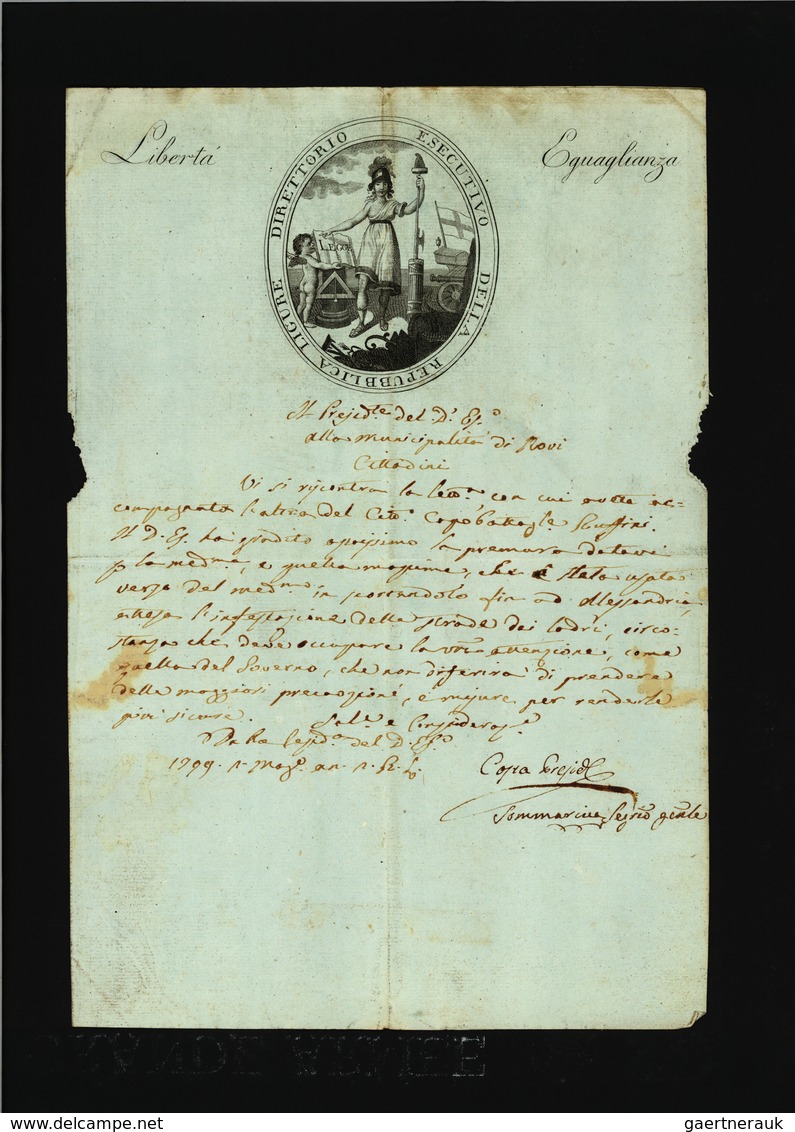 Libertá
Eguaglianza
DIRETTORIO ESECUTIVO DELLA REPUBBLICA LIGURE
LEGGE
Il Presid.te del D.o Es.o
alla Municipalità di Novi
Cittadini
Vi si riscontra la lett.a con cui avete ac-
compagnato l'altra del Citt.o Capobattagl.e Ruffini.
Il D. Es. ha gradito assaissimo la premura datavi
p la med.ma, e quella massima, che è stata usata
verso del med.mo in scortandolo fin ad Alessandria,
attesa l'infestazione delle strade dai ladri, circo-
stanza che deve occupare la vrã attenzione, come
quella del Governo, che non diferirà di prendere
delle maggiori precauzioni, e misure per renderle
più sicure. Sal.e e Consideraz.e
Dalla Resid.a del D. Es.o
1799. Mag.o an. R. L.
Costa Presid.
Sommariva Segrio genle
www.delcampe.net
gaertnerauk